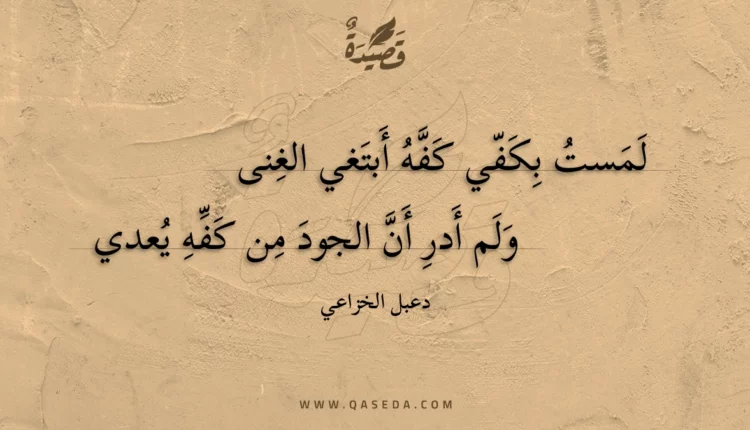 قَصِيْدَةٌ
لَمَستُ بِكَفّي كَفَّهُ أَبتَغي الغِنى
وَلَم أَدرِ أَنَّ الجودَ مِن كَفِّهِ يُعدي
دعبل الخزاعي
WWW.QASEDA.COM